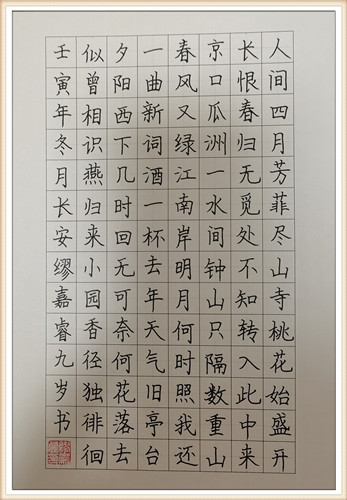 人间四月芳菲尽山寺桃花始盛开
长恨春归无觅处不知转入此中来
京口瓜洲一水间钟山只隔数重山
春风又绿江南岸明月何时照我还
一曲新词酒一杯去年天气旧亭台
夕阳西下几时回无可奈何花落去
似曾相识燕归来小园香径独徘徊
壬寅年冬月长安缪嘉睿九岁书